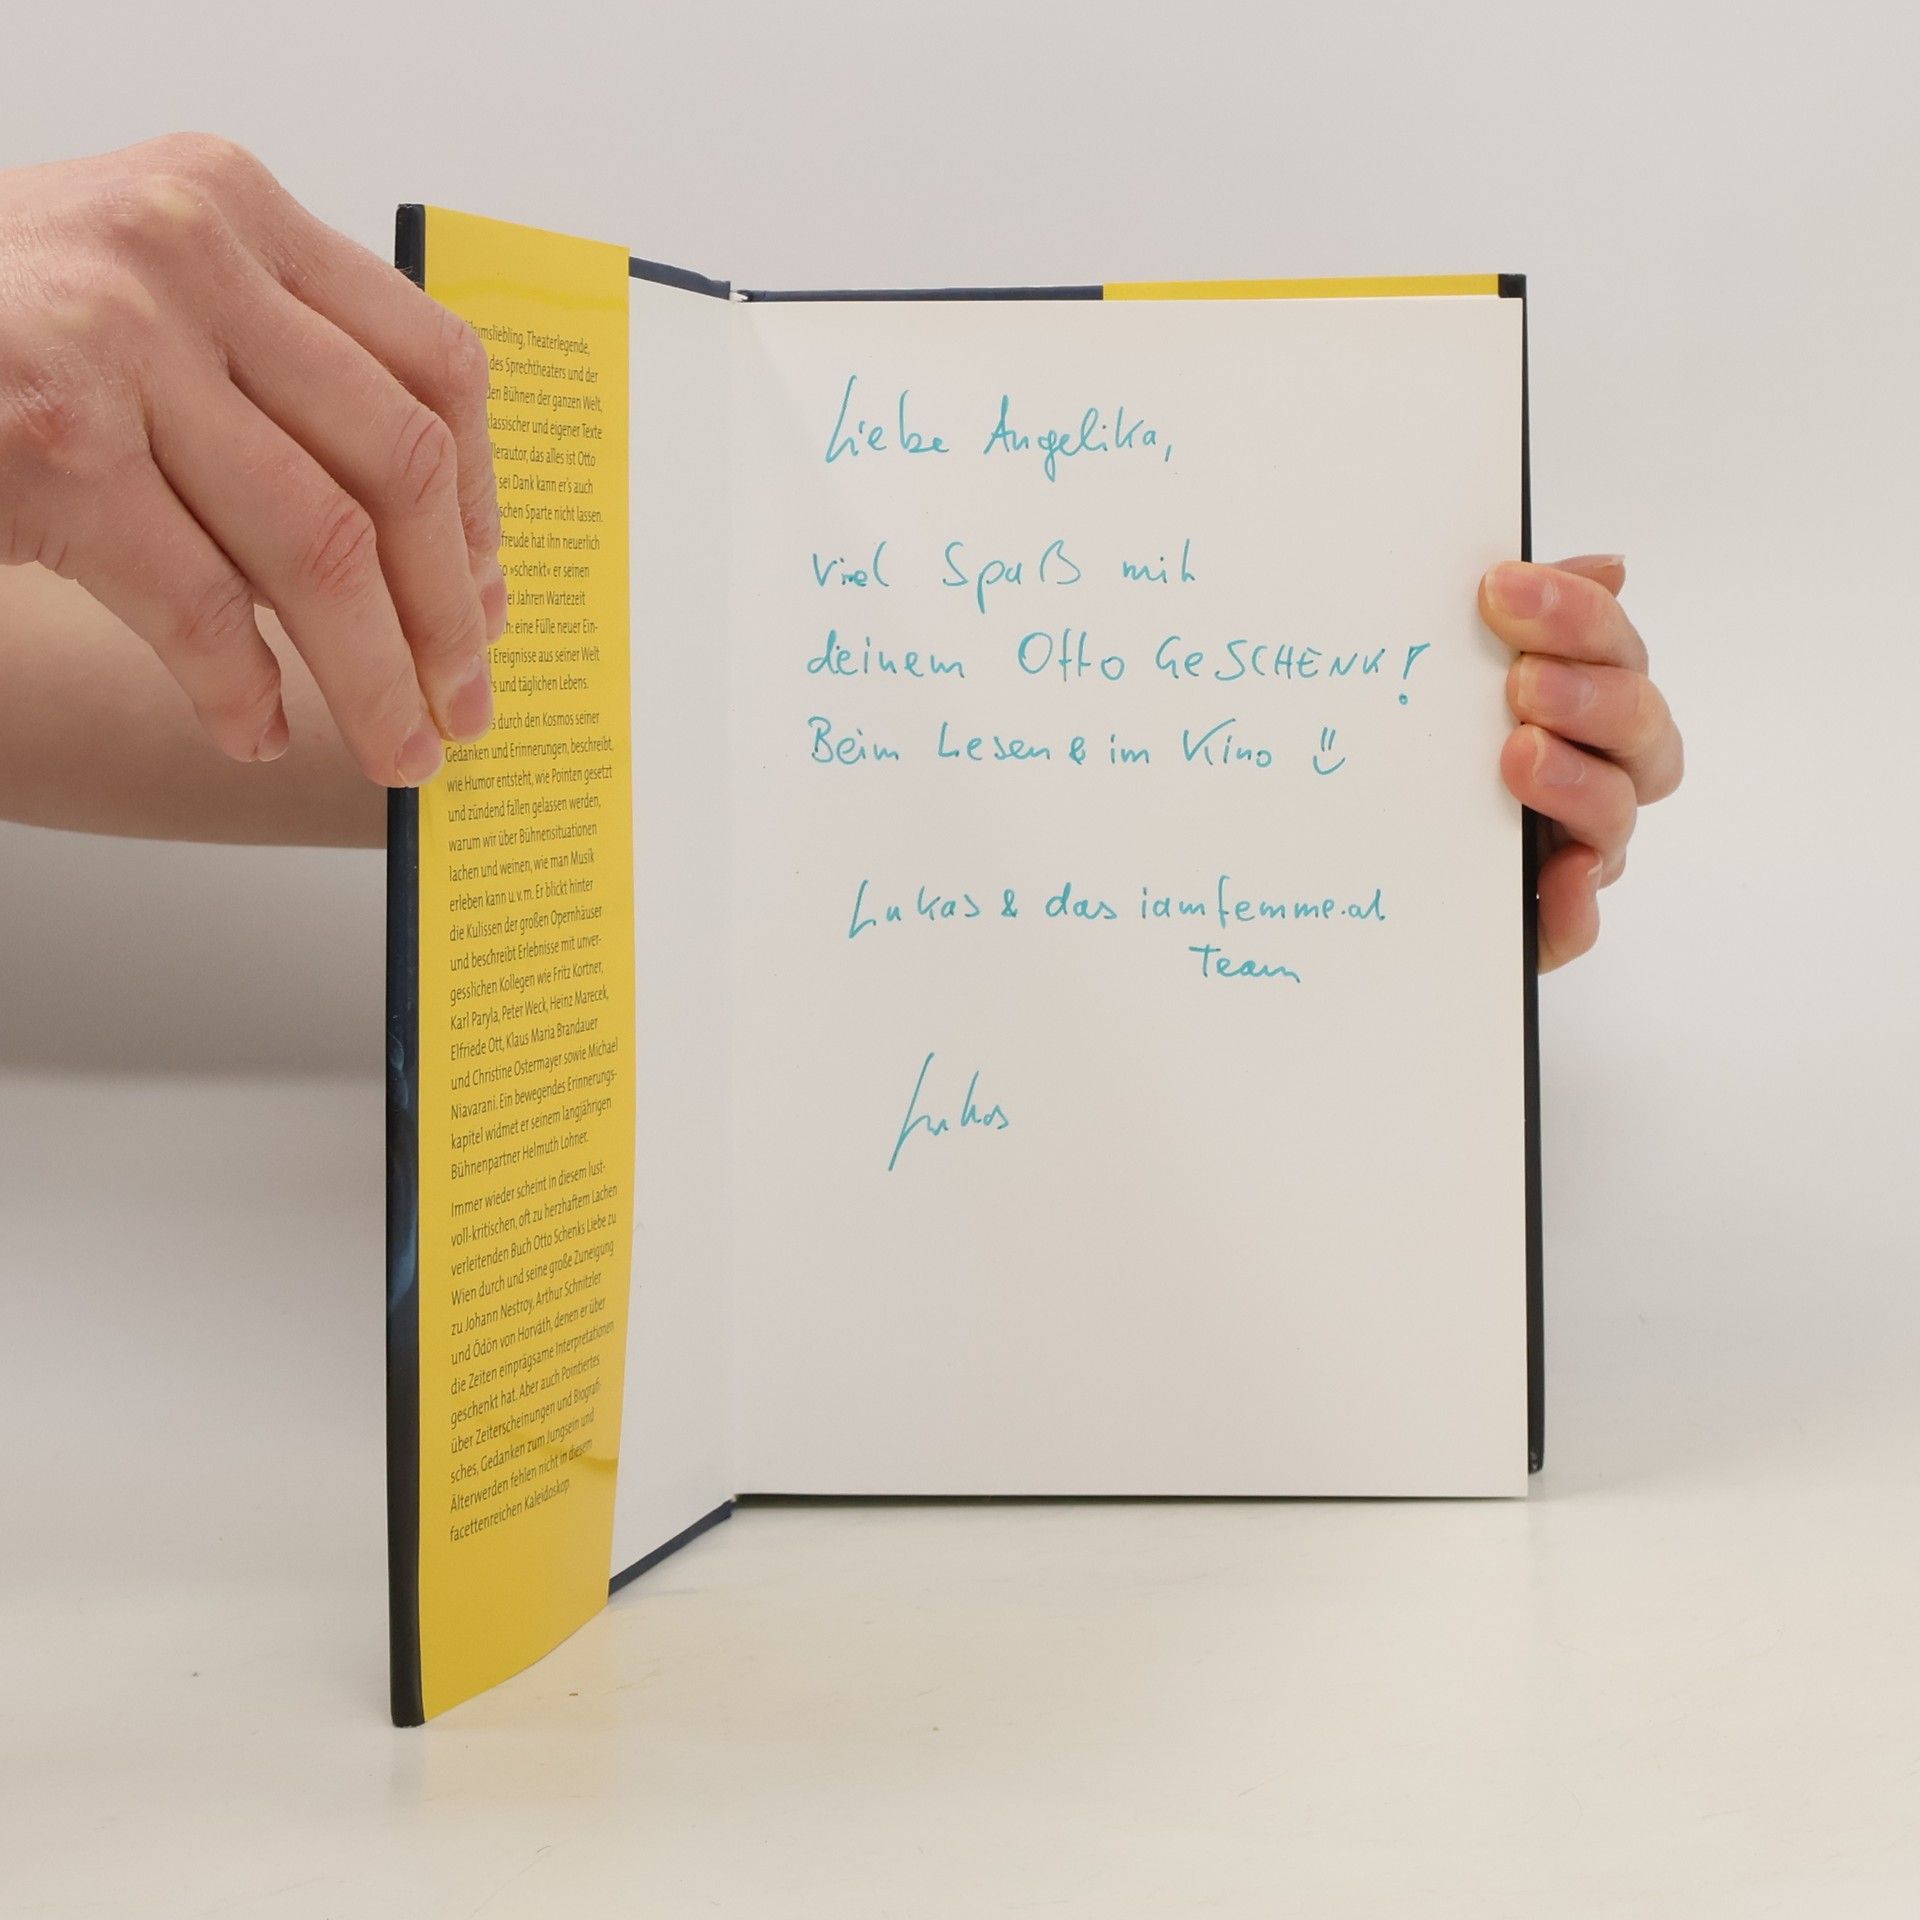 umsliebling, Theaterlegende,
des Sprechtheaters und der
den Bühnen der ganzen Welt,
klassischer und eigener Texte
llerautor, das alles ist Otto
sei Dank kann er's auch
schen Sparte nicht lassen.
freude hat ihn neuerlich
»schenkt« er seinen
ei Jahren Wartezeit
h: eine Fülle neuer Ein-
d Ereignisse aus seiner Welt
s und täglichen Lebens.
s durch den Kosmos seiner
Gedanken und Erinnerungen, beschreibt,
wie Humor entsteht, wie Pointen gesetzt
und zündend fallen gelassen werden,
warum wir über Bühnensituationen
lachen und weinen, wie man Musik
erleben kann u. v. m. Er blickt hinter
die Kulissen der großen Opernhäuser
und beschreibt Erlebnisse mit unver-
gesslichen Kollegen wie Fritz Kortner,
Karl Paryla, Peter Weck, Heinz Marecek,
Elfriede Ott, Klaus Maria Brandauer
und Christine Ostermayer sowie Michael
Niavarani. Ein bewegendes Erinnerungs-
kapitel widmet er seinem langjährigen
Bühnenpartner Helmuth Lohner.
Immer wieder scheint in diesem lust-
voll-kritischen, oft zu herzhaftem Lachen
verleitenden Buch Otto Schenks Liebe zu
Wien durch und seine große Zuneigung
zu Johann Nestroy, Arthur Schnitzler
und Ödön von Horváth, denen er über
die Zeiten einprägsame Interpretationen
geschenkt hat. Aber auch Pointiertes
über Zeiterscheinungen und Biografi-
sches, Gedanken zum Jungsein und
Älterwerden fehlen nicht in diesem
facettenreichen Kaleidoskop.
Liebe Angelika,
viel Spaß mit
deinem Otto GeSCHENK!
Beim Lesen & im Kino
Lukas & das iamfemme.at
Team
Lukas